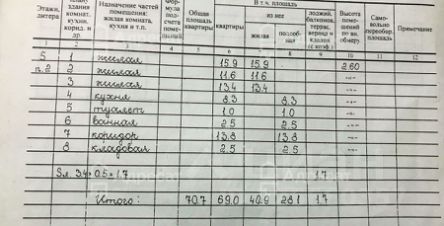 Этажи, литера
здания комнат, кухни, корид. и др.
Назначение частей помещения: жилая комната, кухня и т.п.
Фор- мула под- счета
Общая площадь квартиры
В т.ч. площадь
квартиры
из нее
жилая
лоджий, балконов, террас, веранд и кладов (с коэф.)
Высота поме- щения
Само- вольно переобор. площадь
Примечание
1 2 3 4 5 6 7 8 9 10 11 12
5 1 жилая 15.9 15.9 2.60
п.2 2 жилая 11.6 11.6 -"-
3 жилая 13.4 13.4 -"-
4 кухня 8.3 8.3 -"-
5 туалет 1.0 1.0 -"-
6 ванная 2.5 2.5 -"-
7 коридор 13.8 13.8 -"-
8 кладовая 2.5 2.5 -"-
3.4 0.5 = 1.7 1.7
Итого: 70.7 69.0 40.9 28.1 1.7